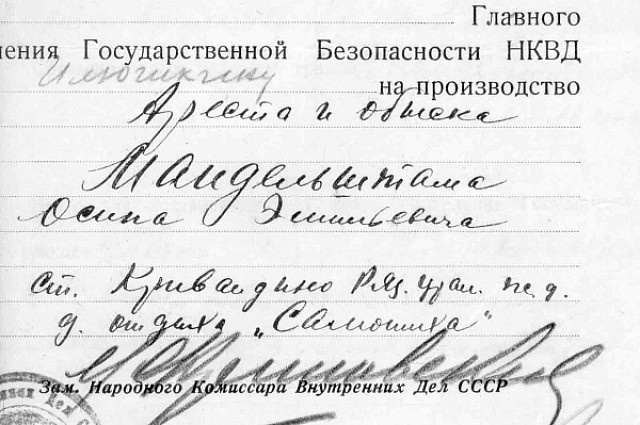 Главного
ления Государственной Безопасности НКВД
на производство
Ареста и обыска
Мандельштама
Осипа Эмильевича
ст. Кривандино Ряз. урал. ж. д.
д. отдыха „Саматиха"
Зам. Народного Комиссара Внутренних Дел СССР